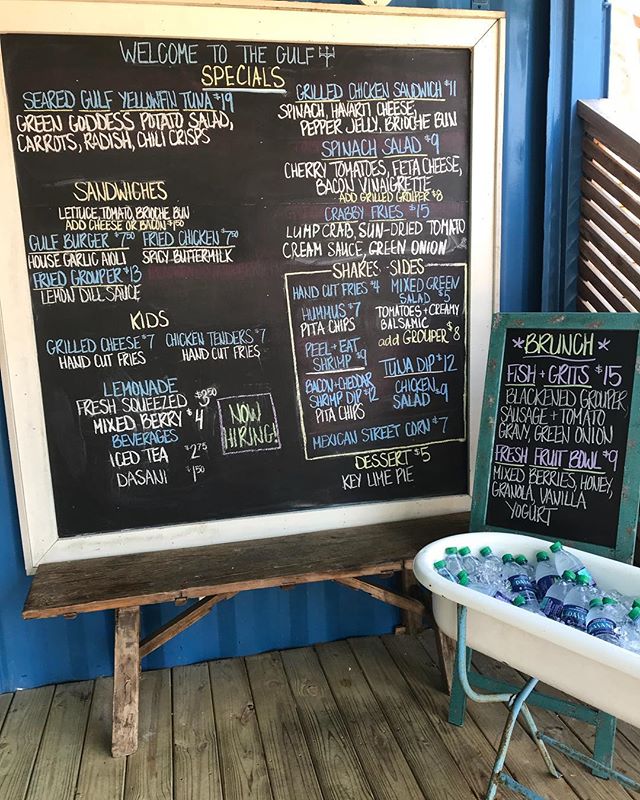 WELCOME TO THE GULF
SPECIALS
SEARED GULF YELLOWFIN TUNA $19
GREEN GODDESS POTATO SALAD,
CARROTS, RADISH, CHILI CRISPS
SANDWICHES
LETTUCE, TOMATO, BRIOCHE BUN
ADD CHEESE OR BACON $1.50
GULF BURGER $7.50 FRIED CHICKEN $7.50
HOUSE GARLIC AIOLI SPICY BUTTERMILK
FRIED GROUPER $13
LEMON DILL SAUCE
KIDS
GRILLED CHEESE $7 CHICKEN TENDERS $7
HAND CUT FRIES HAND CUT FRIES
LEMONADE
FRESH SQUEEZED $3.50
MIXED BERRY $4
BEVERAGES
ICED TEA $2.75
DASANI $1.50
NOW
HIRING!
GRILLED CHICKEN SANDWICH $11
SPINACH, HAVARTI CHEESE,
PEPPER JELLY, BRIOCHE BUN
SPINACH SALAD $9
CHERRY TOMATOES, FETA CHEESE,
BACON VINAIGRETTE
ADD GRILLED GROUPER $8
CRABBY FRIES $15
LUMP CRAB, SUN-DRIED TOMATO
CREAM SAUCE, GREEN ONION
SHARES SIDES
HAND CUT FRIES $4
HUMMUS $7
PITA CHIPS
PEEL + EAT
SHRIMP $9
BACON + CHEDDAR
SHRIMP DIP $12
PITA CHIPS
MIXED GREEN
SALAD $5
TOMATOES + CREAMY
BALSAMIC
add GROUPER $8
TUNA DIP $12
CHICKEN
SALAD $9
MEXICAN STREET CORN $7
DESSERT $5
KEY LIME PIE
*BRUNCH*
FISH + GRITS $15
BLACKENED GROUPER
SAUSAGE + TOMATO
GRAVY, GREEN ONION
FRESH FRUIT BOWL $9
MIXED BERRIES, HONEY,
GRANOLA, VANILLA
YOGURT